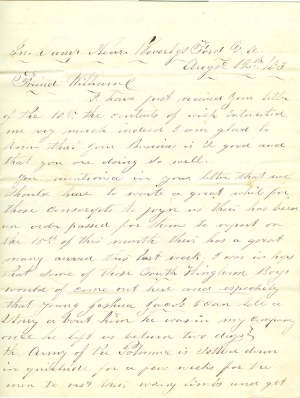 In Camp Near Beverlys Ford Va.
Augt 12th 1863
Friend William
I have just recived your letter
of the 10th the contents of wich interested
me very much indeed I am glad to
know that your Business is so good and
that you are doing so well.
You mentioned in your letter that we
should have to waite a great whil for
those conscripts to joyn us thair has been
an order passed for them to report on
the 15th of this month thair has a great
many arived this last week, I was in hops
that some of those South Hingham Boys
would of come out hear and espechily
that young Joshua Jacob I can tell a
Storey a bout him he was in my company
once he left us
the Army of the Potomac is setled down
in quietude for a few weeks for the
men to rest their weary limbs and get